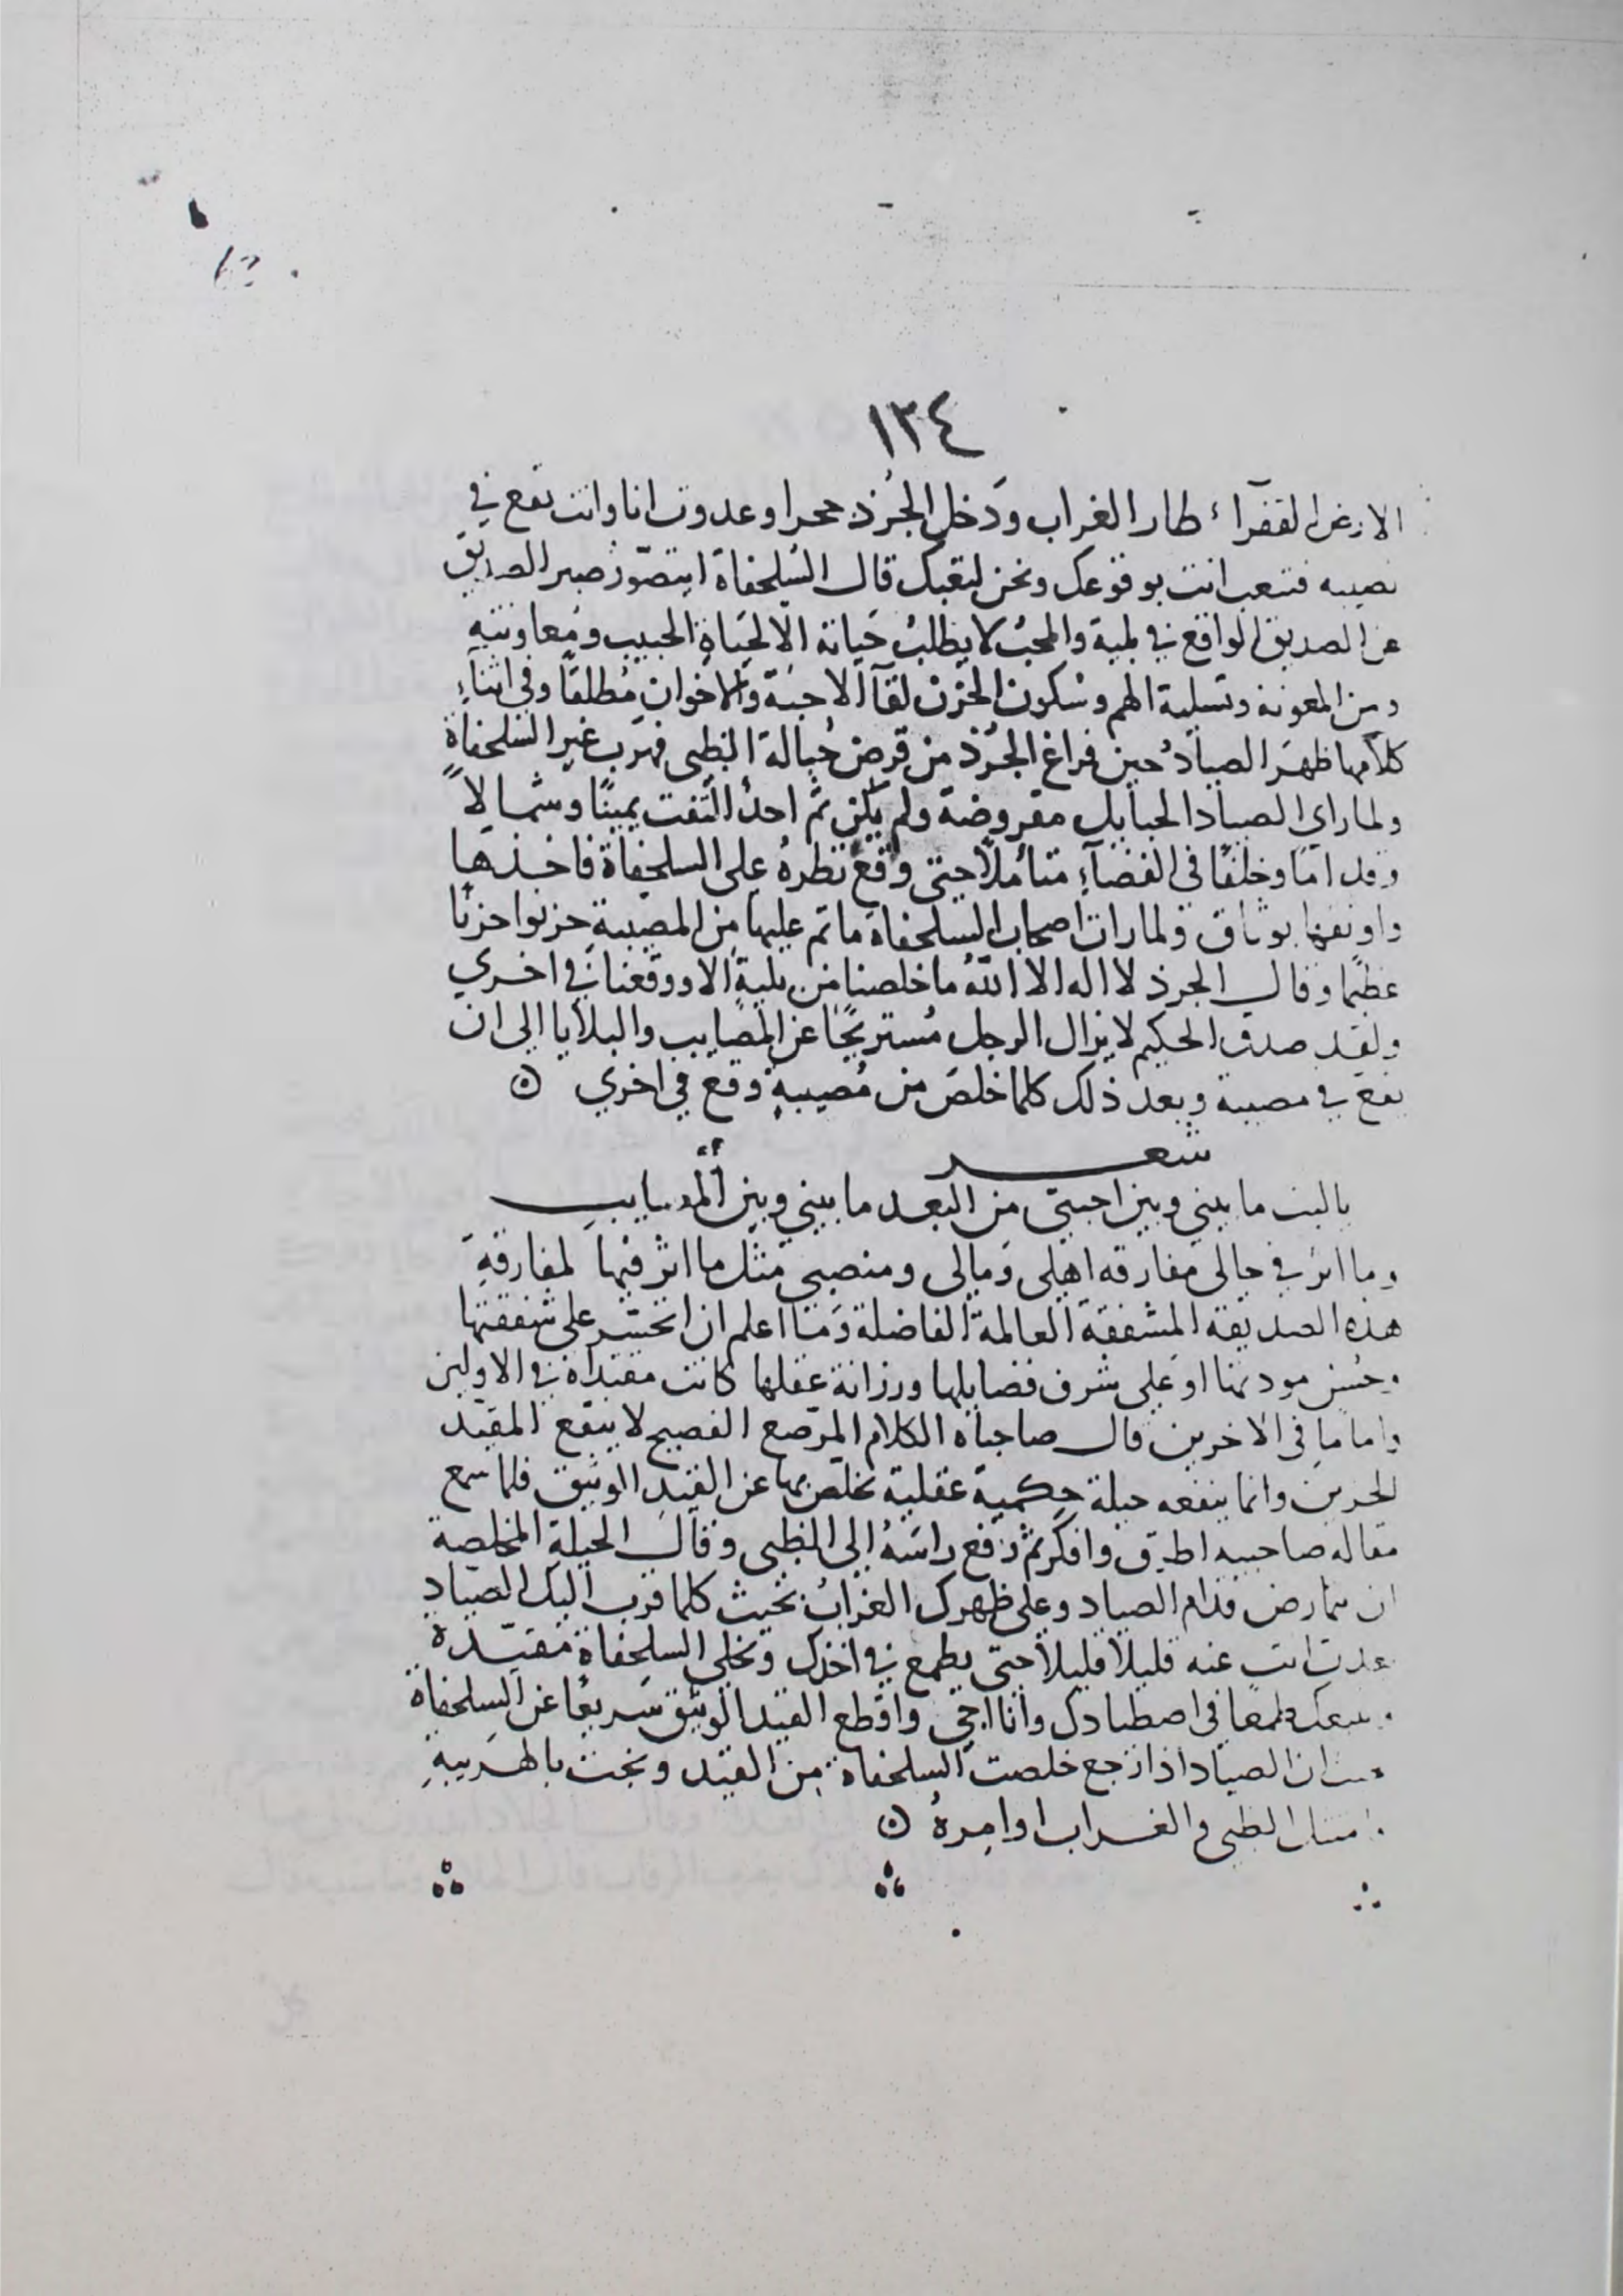 ١٣٤
الارض القفرآء طار الغراب ودَخل الجُرذ جحرا وعدوت انا وانت تقع في
نصيبه فتتعب انت بوقوعك ونحن لتعبك قال السُلحفاة ايتصوّر صبر الصديق
عن الصديق الواقع في بلية والمحبُ لا يطلبُ حَياته الا لحَياةِ الحبيب ومُعاونتهِ
ومن المعونة وتسلية الهم وسُكون الحُزن لقآ الاحبَة والاخوان مُطلقًا وفي اثنآءِ
كلامها ظهَر الصيادُ حين فراغ الجُرذ من قرض حُبالة الظبي فهرَب غير السُلحفاةِ
ولما راي الصياد الحبايل مقروضة ولم يكن ثمّ احدٌ التفت يمينًا وشمالاً
وقدامًا وخلفًا في الفضآءِ متأملاً حتى وقعَ نظرهُ على السلحفاة فاخذها
واوثقها بوثاق ولما رات اصحاب السلحفاة ما تم عليها من المصيبةِ حزنوا حزنًا
عظيمًا وقال الجرذ لا اله الا اللهُ ما خلصنا من بليةٍ الا ووقعنا في اخري
ولقد صدق الحكيم لا يزال الرجل مُستريحًا عن المصايب والبلايا الي ان
يقع في مصيبة وبعد ذلك كلما خلصَ من مُصيبةٍ وقع في اخري
شعر
ياليت ما بيني وبين احبتي من البعد ما بيني وبين المصايبِ
وما اثر في حالي مفارقة اهلي ومالي ومنصبي مثل ما اثر فيها لمفارقةِ
هذه الصديقة المشفقة العالمة الفاضلة وَما اعلم ان اتحسّر على شفقتها
وحُسن مودتها او على شرف فضايلها ورزانة عقلها كانت مقتداة في الاولين
واماما في الاخرين قال صاحباه الكلام المرصع الفصيح لا ينفع المقيد
الحزين وانما ينفعه حيلة حِكمية عقلية تخلص بها عن القيد الوثيق فلما سمع
مقالة صاحبيه اطرق وافكر ثم رفع راسَهُ إلى الظبي وقال الحيلةِ المخلصة
ان تمارض قدام الصياد وعلى ظهرك الغرابُ بحيث كلما قرب اليك الصياد
عدت انت عنه قليلاً قليلاً حتى يطمع في اخذك ويخلي السلحفاة مقيّدة
طمعًا في اصطيادك وانا اجي واقطع القيد الوثيق سَريعًا عن السلحفاة
ان الصياد اذا رجع خلصت السلحفاة من القيد ونجت بالهَريبةِ
الظبي والغراب اوامِرهُ